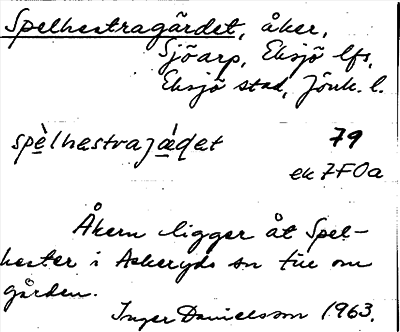 Spelhestragärdet, åker,
Sjöarp, Eksjö lfs,
Eksjö stad, Jönk. l.
spèlhæstrajǽɖet 79
ek 7F0a
Åkern ligger åt Spel-
hester i Askeryds sn till om
gården.
Inger Danielsson 1963.